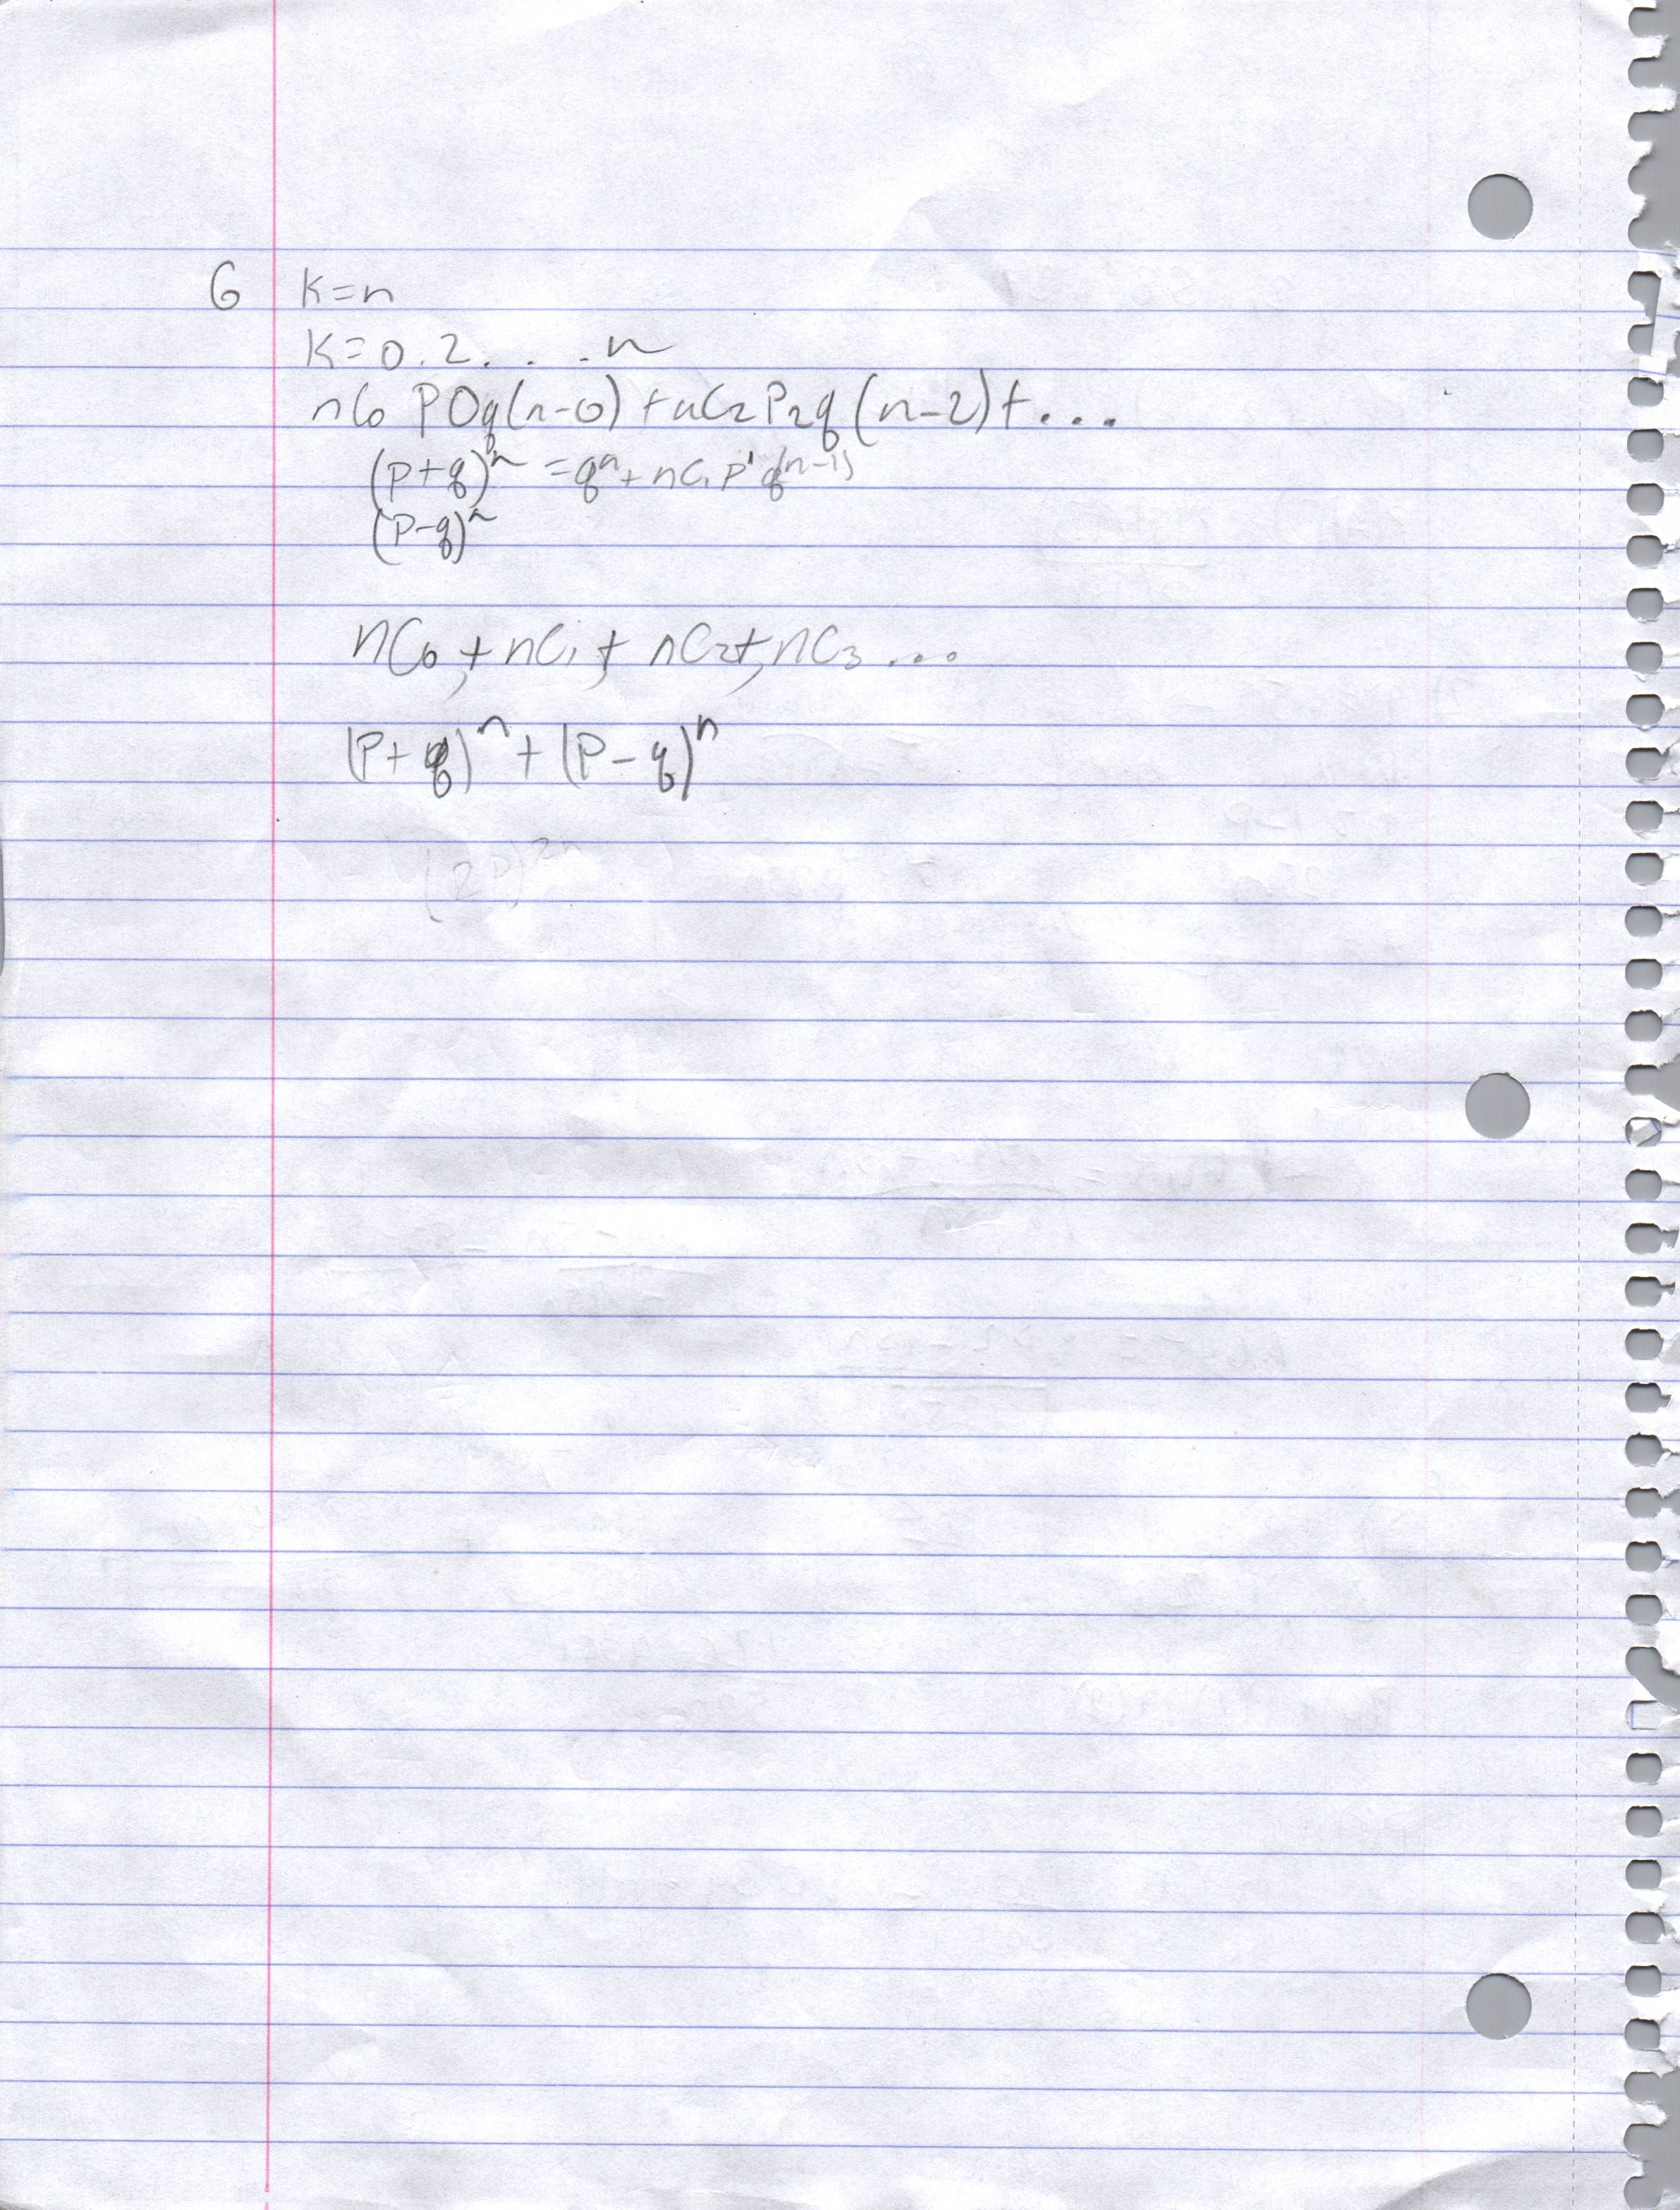 6 K=n
K=0.2....n
nC₀ P0q(n-0) + nC₂P₂q(n-2)+...
(p+q)ⁿ = qⁿ + nC₁ p¹ q⁽ⁿ⁻¹⁾
(p-q)ⁿ
nC₀, + nC₁, + nC₂+, nC₃ ...
(P+q)ⁿ + (P-q)ⁿ
(2P)²ⁿ